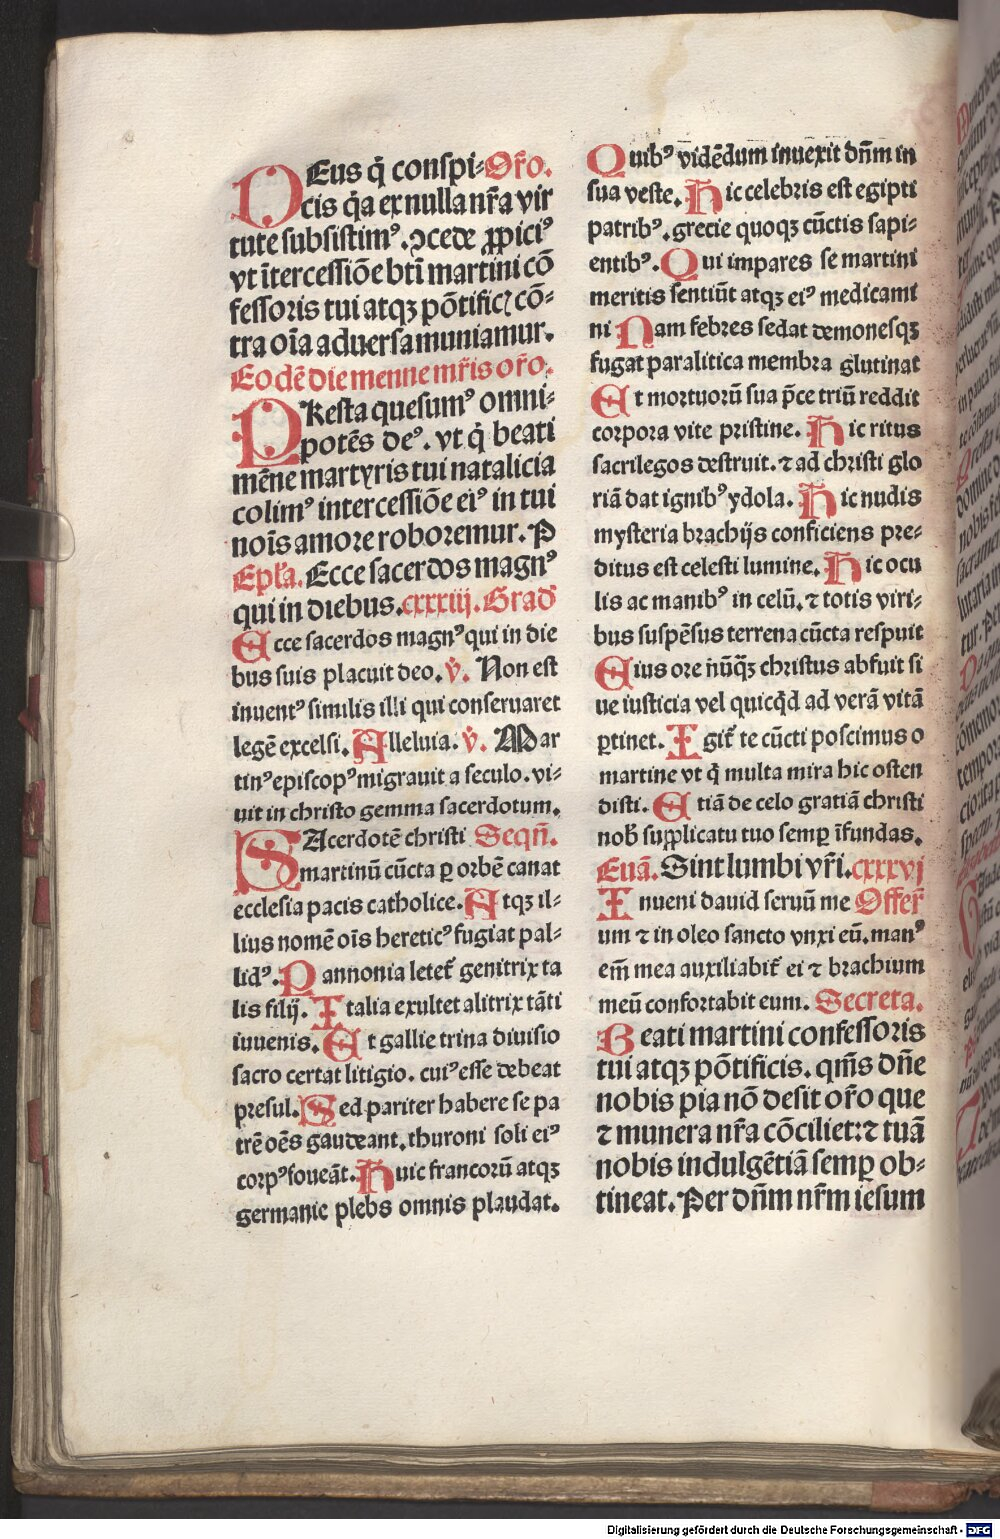 DEus q̃ conspi⸗ Or̃o.
cis q̃a ex nulla nr̃a vir
tute subsistimꝰ. ꝯcede ꝓpiciꝰ
vt ĩtercessiõe btĩ martini cõ
fessoris tui atqꝫ põtificꝭ cõ⸗
tra oĩa aduersa muniamur.
Eodẽ die menne mr̃is or̃o.
PResta quesumꝰ omni⸗
potẽs deꝰ. vt q̃ beati
mẽne martyris tui natalicia
colimꝰ intercessiõe eiꝰ in tui
noĩs amore roboremur. P
Epl̃a. Ecce sacerdos magnꝰ
qui in diebus. cxxxiij. Grad̃
Ecce sacerdos magnꝰ qui in die
bus suis placuit deo. v̾. Non est
inuentꝰ similis illi qui conseruaret
legẽ excelsi. Alleluia. v̾. Mar
tinꝰ episcopꝰ migrauit a seculo. vi⸗
uit in christo gemma sacerdotum.
SAcerdotẽ christi Seqñ.
martinũ cũcta ꝑ orbẽ canat
ecclesia pacis catholice. Atqꝫ il⸗
lius nomẽ oĩs hereticꝰ fugiat pal⸗
lidꝰ. Pannonia letet᷑ genitrix ta
lis filij. Italia exultet alitrix tãti
iuuenis. Et gallie trina diuisio
sacro certat litigio. cuiꝰ esse debeat
presul. Sed pariter habere se pa
trẽ oẽs gaudeant. thuroni soli eiꝰ
corpꝰ foueãt. Huic francorũ atqꝫ
germanie plebs omnis plaudat.
Quibꝰ vidẽdum inuexit dñm in
sua veste. Hic celebris est egipti
patribꝰ. grecie quoqꝫ cũctis sapi⸗
entibꝰ. Qui impares se martini
meritis sentiũt atqꝫ eiꝰ medicami
ni Nam febres sedat demonesqꝫ
fugat paralitica membra glutinat
Et mortuorũ sua p̃ce triũ reddit
corpora vite pristine. Hic ritus
sacrilegos destruit. ⁊ ad christi glo
riã dat ignibꝰ ydola. Hic nudis
mysteria brachijs conficiens pre⸗
ditus est celesti lumine. Hic ocu
lis ac manibꝰ in celũ. ⁊ totis viri⸗
bus suspẽsus terrena cũcta respuit
Eius ore nũq̃ꝫ christus abfuit si
ue iusticia vel quicq̃d ad verã vitã
ꝑtinet. Igit᷑ te cũcti poscimus o
martine vt q̃ multa mira hic osten
disti. Etiã de celo gratiã christi
nob̃ supplicatu tuo semꝑ ĩfundas.
Euã. Sint lumbi vr̃i. cxxxvj
Inueni dauid seruũ me Offer̃
um ⁊ in oleo sancto vnxi eũ. manꝰ
em̃ mea auxiliabit᷑ ei ⁊ brachium
meũ confortabit eum. Secreta.
Beati martini confessoris
tui atqꝫ põtificis. qm̃s dñe
nobis pia nõ desit or̃o que
⁊ munera nr̃a cõciliet: ⁊ tuã
nobis indulgẽtiã semꝑ ob⸗
tineat. Per dñm nr̃m iesum
Digitalisierung gefördert durch die Deutsche Forschungsgemeinschaft - DFG